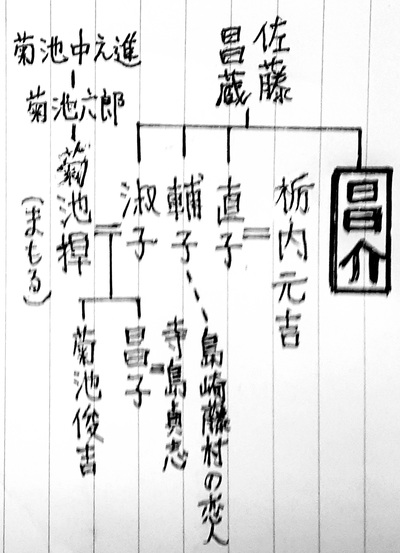 佐藤
昌蔵
昌介
栃内元吉
直子
輔子
島崎藤村の恋人
淑子
昌子
寺島貞志
菊池俊吉
菊池中之進
菊池六郎
菊池捍
(まもる)